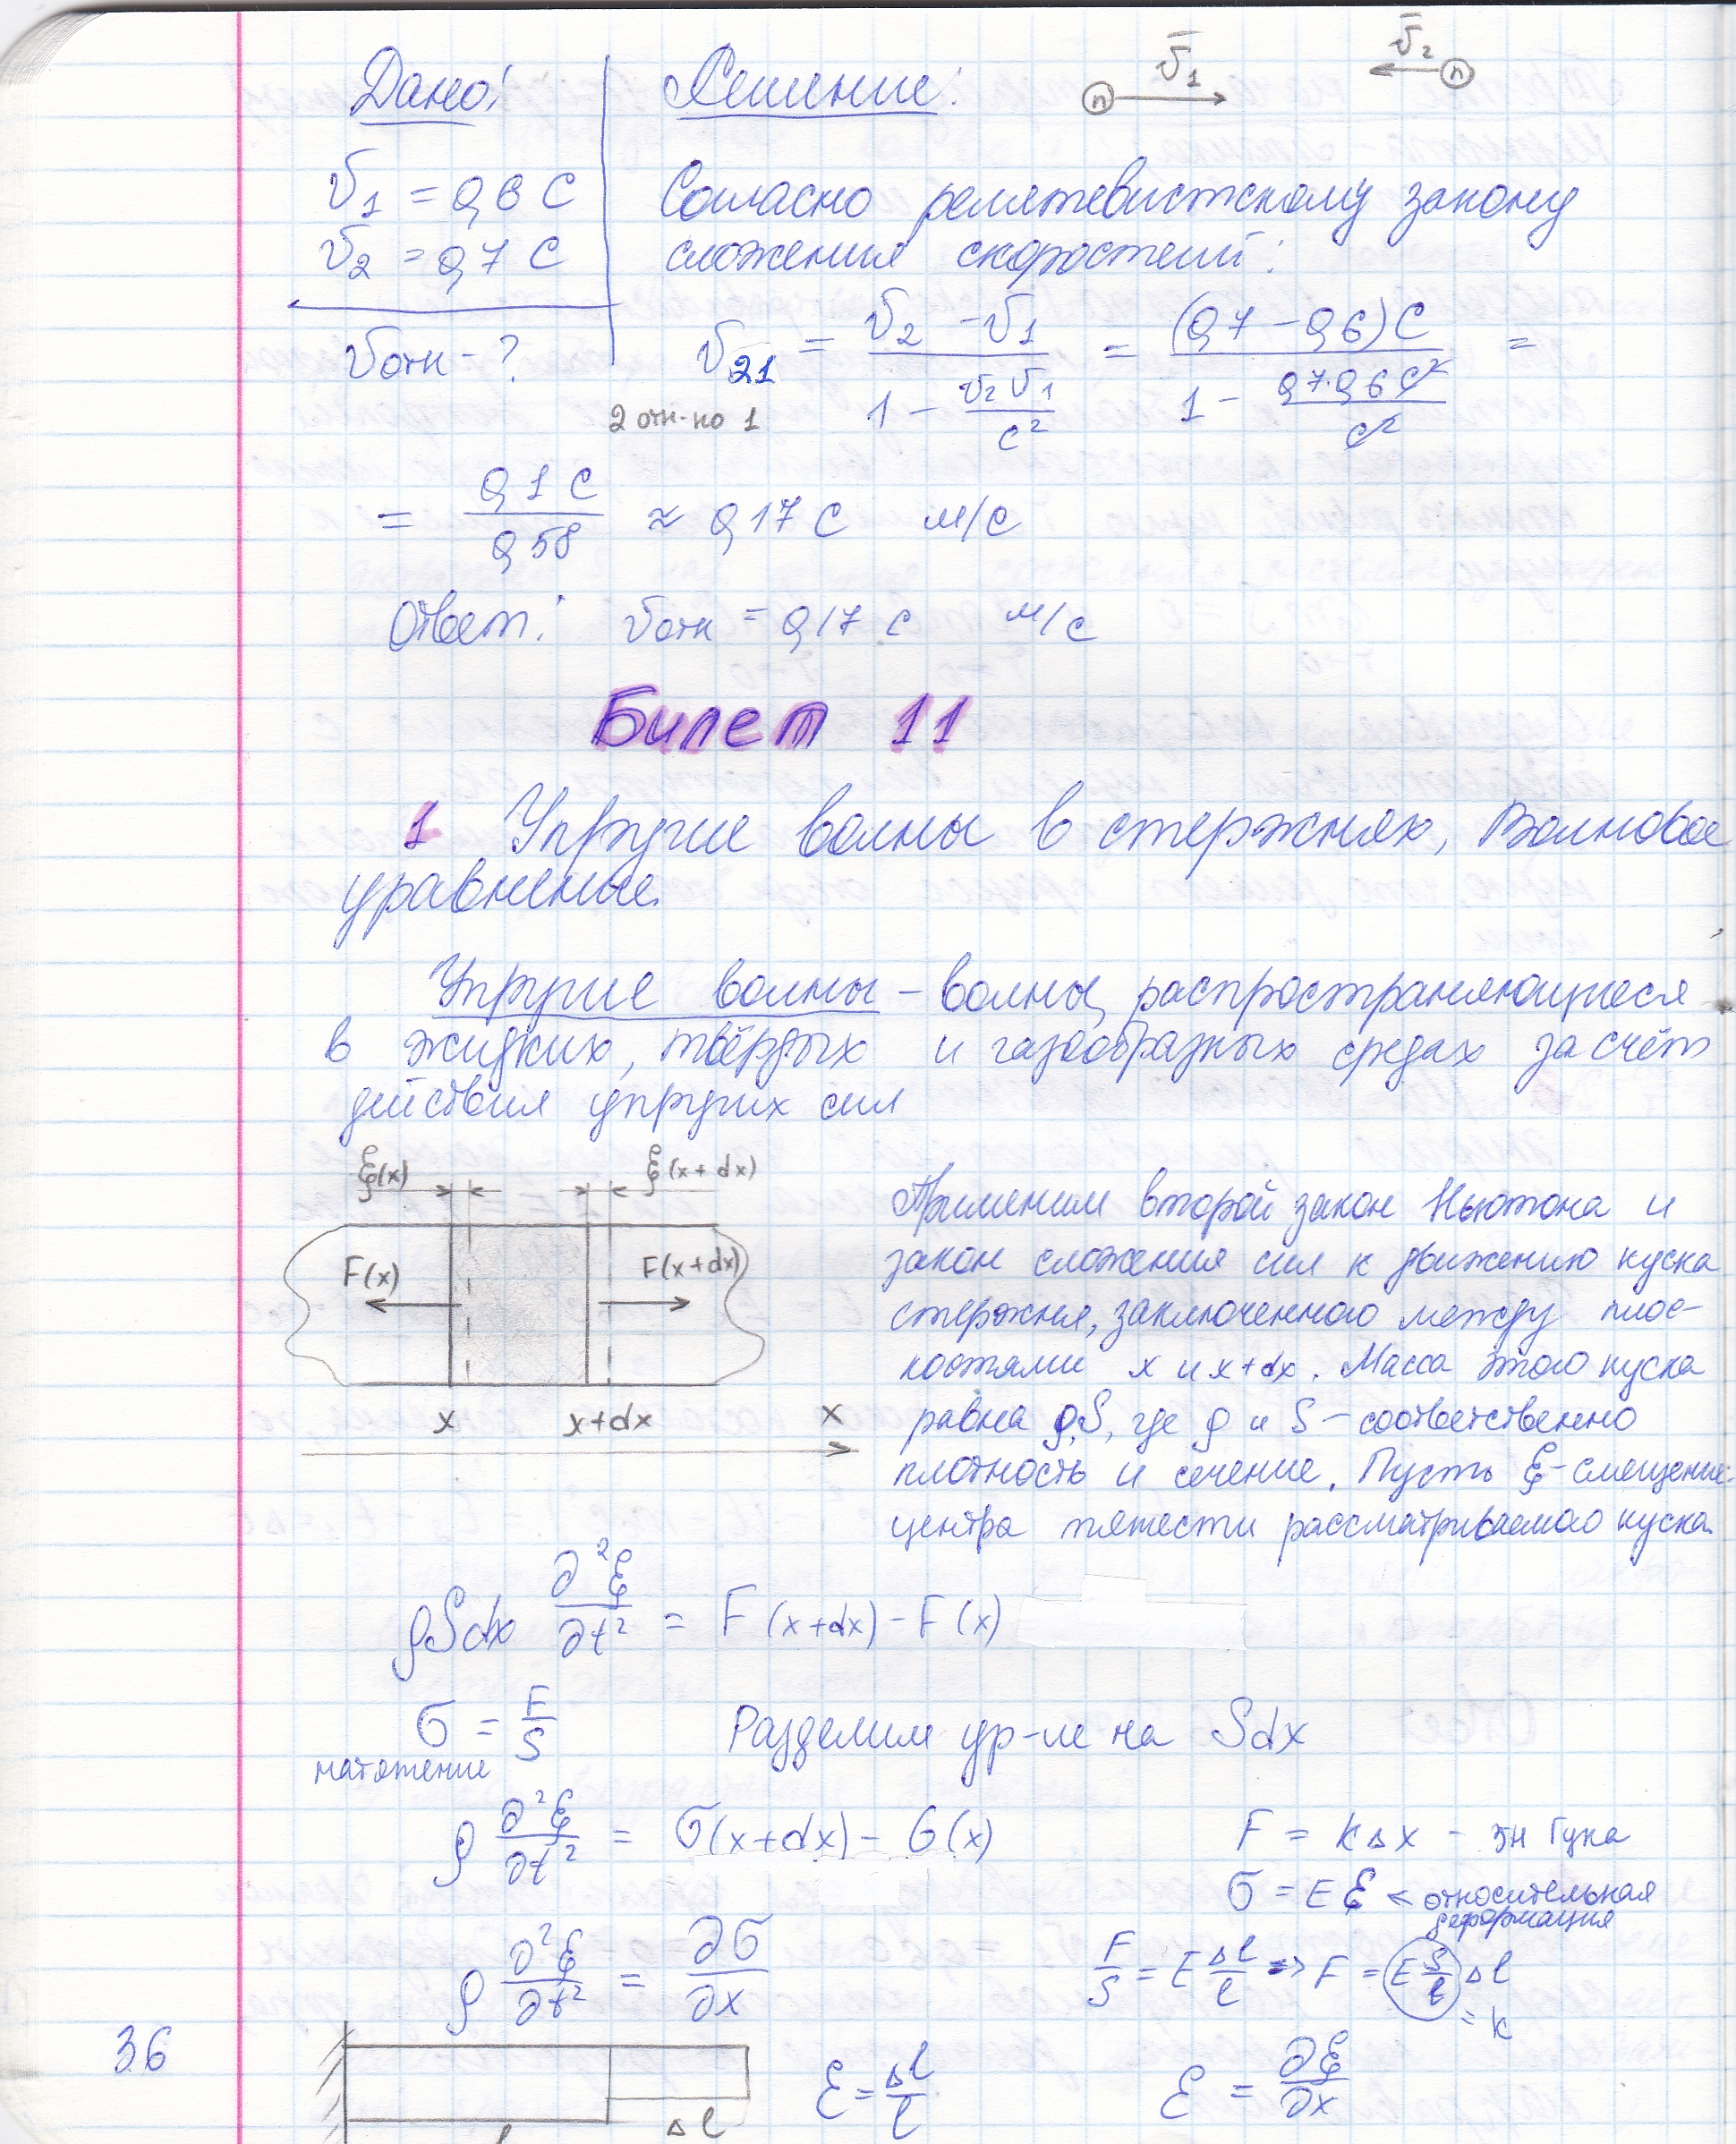 Дано: Решение: v̄₁ v̄₂
n n
v₁ = 0,6 c
v₂ = 0,7 c
vотн - ?
Согласно релятевистскому закону
сложения скоростей:
v₂₁ = (v₂ - v₁) / (1 - v₂v₁/c²) = (0,7 - 0,6)c / (1 - 0,7·0,6c²/c²) =
2 отн-но 1
= 0,1 c / 0,58 ≈ 0,17 c м/с
Ответ: vотн = 0,17 c м/с
Билет 11
1 Упругие волны в стержнях, Волновое
уравнение.
Упругие волны – волны, распространяющиеся
в жидких, твёрдых и газообразных средах за счёт
действия упругих сил
ξ(x) ξ(x + dx)
F(x) F(x+dx)
x x+dx x
Применим второй закон Ньютона и
закон сложения сил к движению куска
стержня, заключенного между плос-
костями x и x+dx. Масса этого куска
равна ρS, где ρ и S – соответственно
плотность и сечение. Пусть ξ - смещение
центра тяжести рассматриваемого куска.
ρSdx ∂²ξ/∂t² = F(x+dx) - F(x)
σ = F/S Разделим ур-ие на Sdx
натяжение
ρ ∂²ξ/∂t² = σ(x+dx) - σ(x) F = kΔx - зн Гука
σ = Eε < относительная
деформация
ρ ∂²ξ/∂t² = ∂σ/∂x F/S = E Δl/l => F = E S/l Δl
= k
36
ε = Δl/l ε = ∂ξ/∂x
l Δl